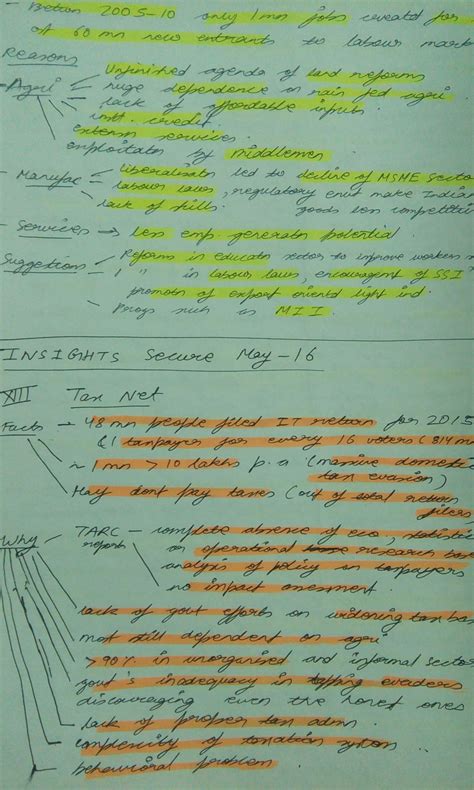 - Betwn 2005-10 only 1mn jobs creatd for
of 60 mn new entrants to labour mark
Reasons
- Agri - Unfinished agenda of land reforms
- huge dependence on rain fed agri
- lack of affordable inputs
- inst. credit
extensn services
exploitatn by middlemen
- Manufac - liberalisatn led to decline of MSME Secto
- labour laws, regulatory envt make Indian
- lack of skills. goods less competitive
- Services → Less emp. generatn potential
Suggestions - Reforms in educatn sector to improve workers
" in labour laws, encouragment of SSI
promotn of export orientd light ind.
- Progs such as MII
INSIGHTS Secure May-16
XII Tax Net
Facts → 48 mn people filed IT return for 2015
& 1 taxpayer for every 16 voters (814 m
~ 1 mn > 10 lakhs p.a (massive domestic
tax evasion)
May dont pay taxes (out of total return
filers
Why - TARC - complete absence of eco, statistic
report or operational research tax
analysis of policy on taxpayers
no impact assesment.
lack of govt efforts on widening tax bas
most still dependent on agri
>90% in unorganised and informal sector
govt's inadequacy in tapping evaders
discouraging even the honest ones
lack of proper tax admn.
complexity of taxation systom
behavioral problem